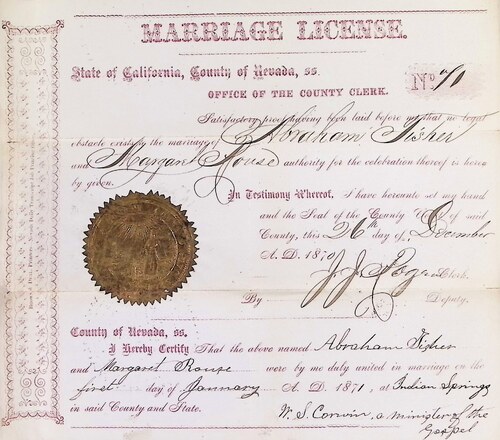 MARRIAGE LICENSE.
State of California, County of Nevada, ss.
No. 70
OFFICE OF THE COUNTY CLERK.
Satisfactory proof having been laid before me that no legal
obstacle exists to the marriage of Abraham Fisher
and Margaret Rouse authority for the celebration thereof is hereby
given.
In Testimony Whereof, I have hereunto set my hand
and the Seal of the County Court of said
County, this 26th day of December
A. D. 1870
J. J. Rogers Clerk.
By Deputy.
County of Nevada, ss.
I Hereby Certify That the above named Abraham Fisher
and Margaret Rouse were by me duly united in marriage on the
first day of January A. D. 1871, at Indian Springs
in said County and State.
W. S. Corwin, a minister of the
Gospel